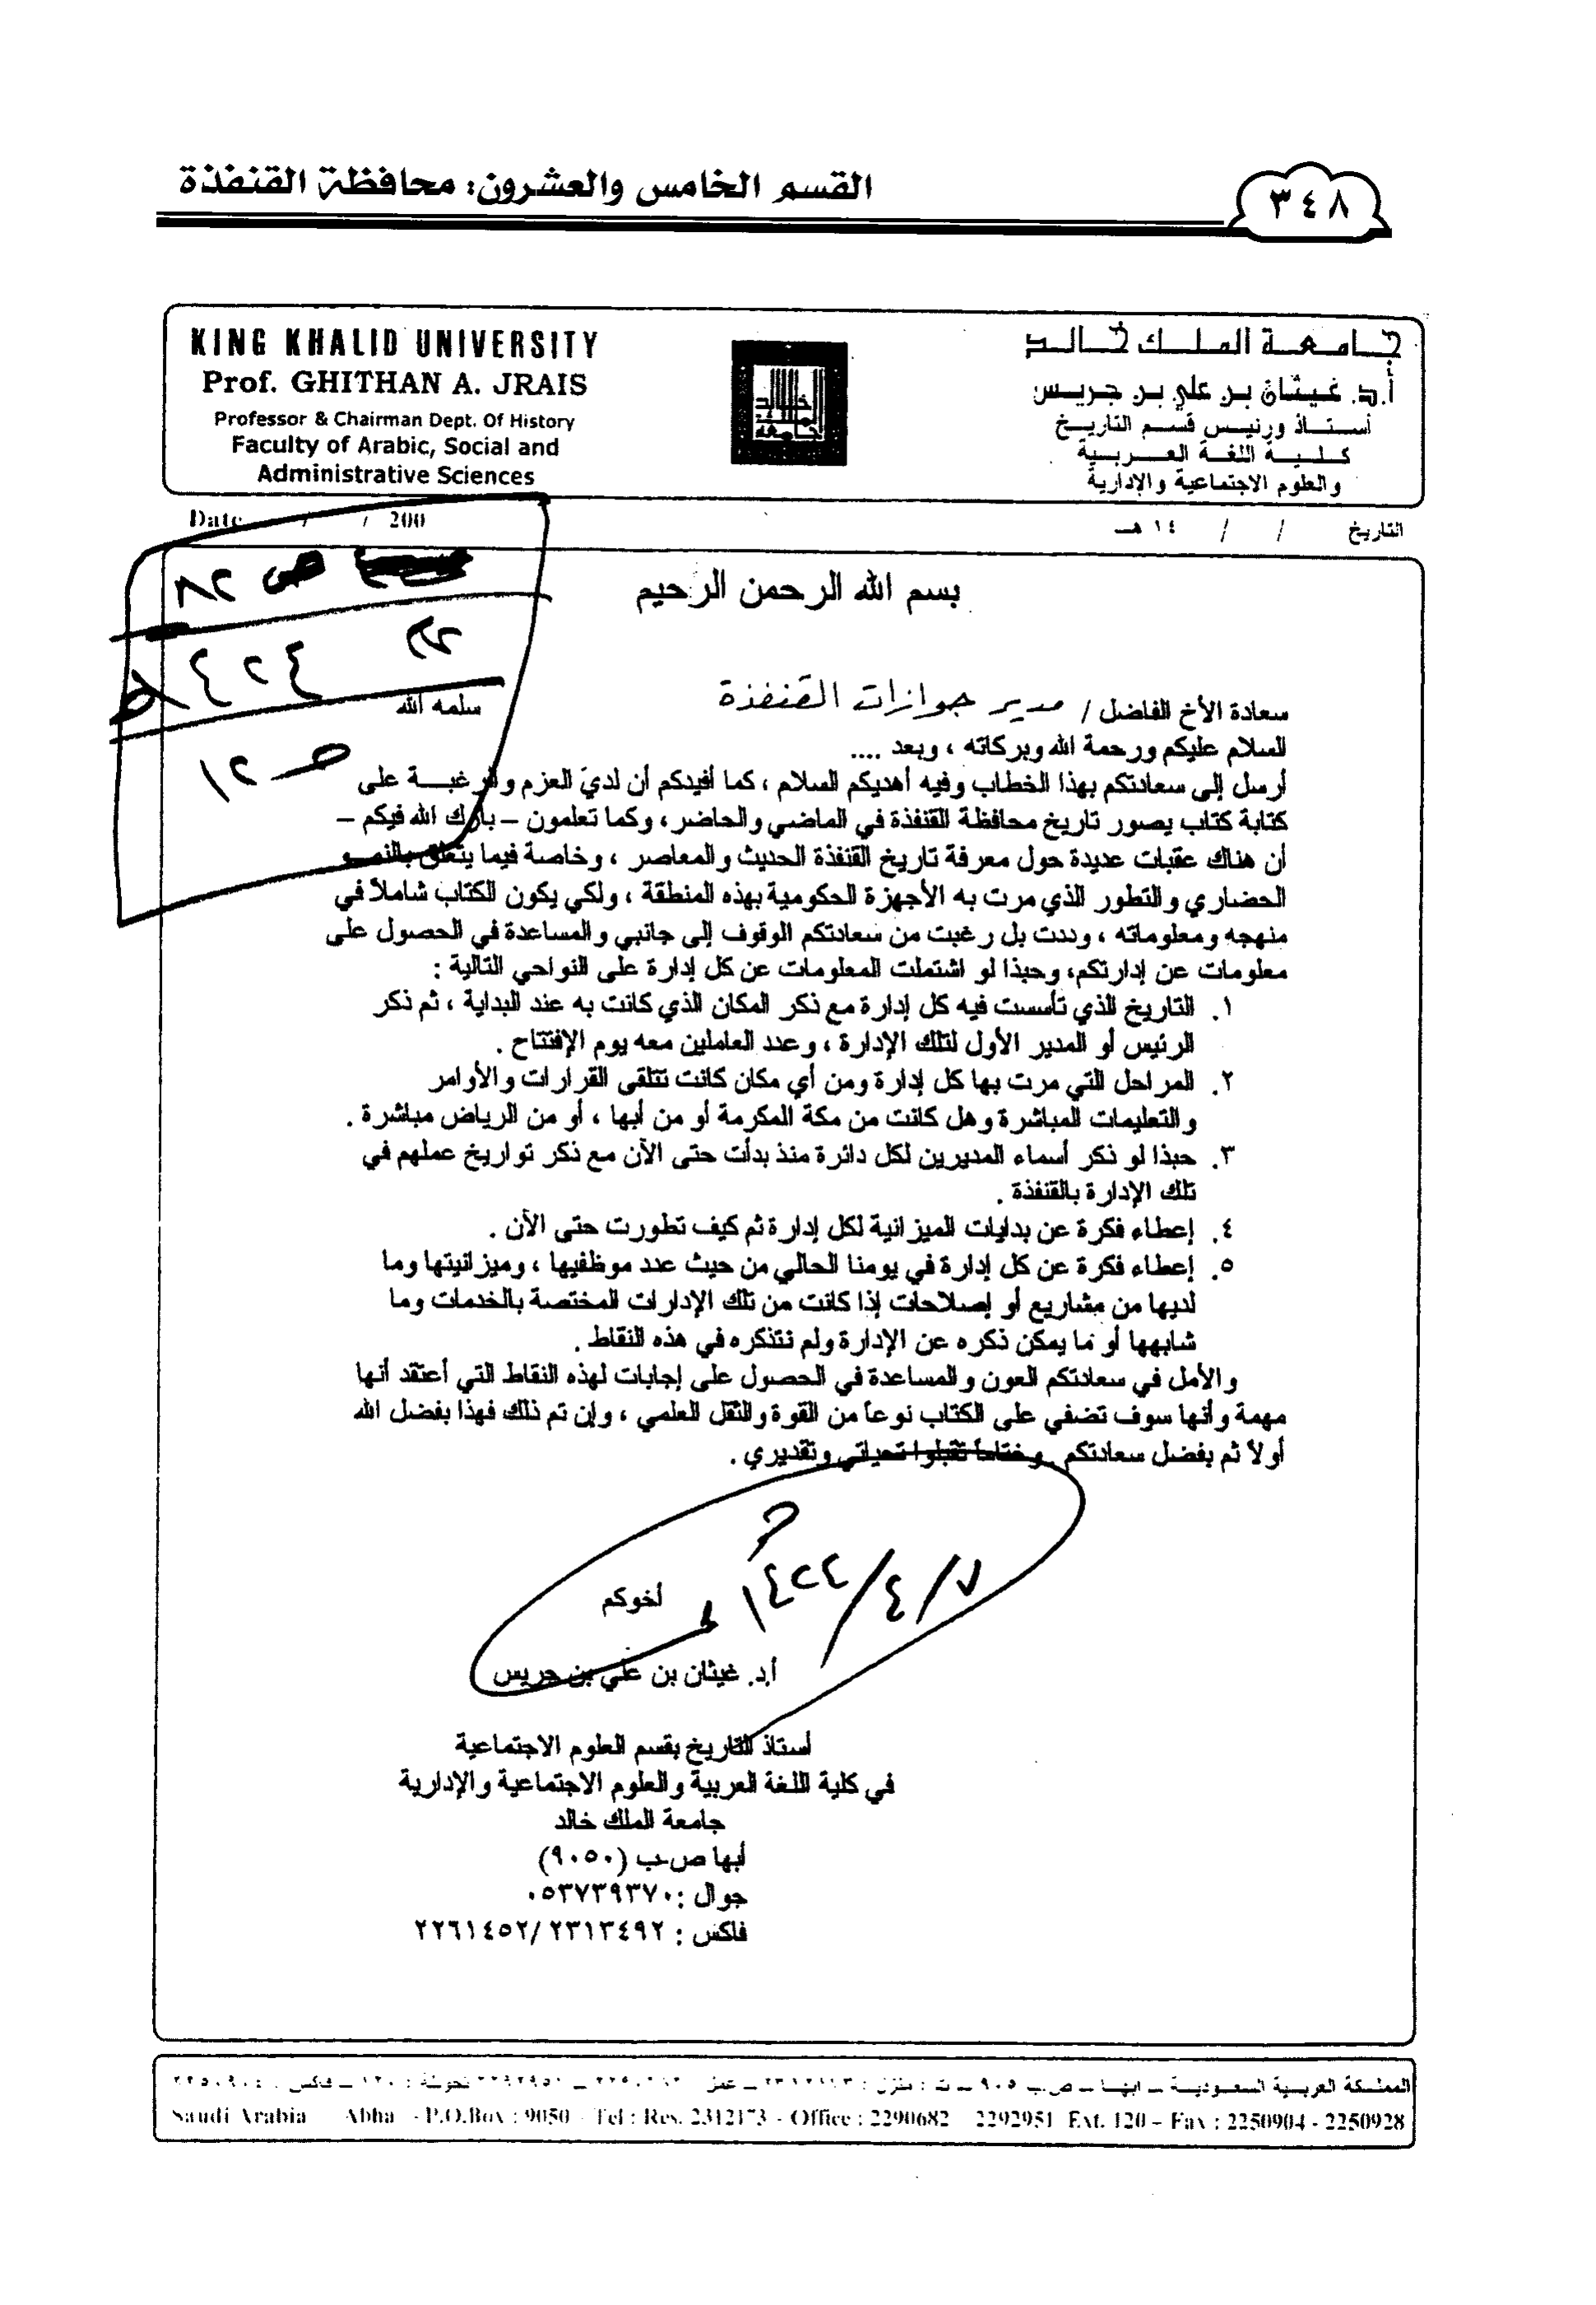 القسم الخامس والعشرون: محافظة القنفذة
٣٤٨
KING KHALID UNIVERSITY
Prof. GHITHAN A. JRAIS
Professor & Chairman Dept. Of History
Faculty of Arabic, Social and
Administrative Sciences
جامعة الملك خالد
أ.د. غيثان بن علي بن جريس
أستاذ ورئيس قسم التاريخ
كلية اللغة العربية
والعلوم الاجتماعية والإدارية
Date / / 200
التاريخ / / ١٤هـ
ص ٢٨
بسم الله الرحمن الرحيم
سعادة الأخ الفاضل / مدير جوازات القنفذة سلمه الله
السلام عليكم ورحمة الله وبركاته ، وبعد ....
ص ٢١
أرسل إلى سعادتكم بهذا الخطاب وفيه أهديكم السلام ، كما أفيدكم أن لديّ العزم والرغبة على
كتابة كتاب يصور تاريخ محافظة القنفذة في الماضي والحاضر، وكما تعلمون – بارك الله فيكم –
أن هناك عقبات عديدة حول معرفة تاريخ القنفذة الحديث والمعاصر ، وخاصة فيما يتعلق بالنمو
الحضاري والتطور الذي مرت به الأجهزة الحكومية بهذه المنطقة ، ولكي يكون الكتاب شاملاً في
منهجه ومعلوماته ، وددت بل رغبت من سعادتكم الوقوف إلى جانبي والمساعدة في الحصول على
معلومات عن إدارتكم، وحبذا لو اشتملت المعلومات عن كل إدارة على النواحي التالية :
١. التاريخ الذي تأسست فيه كل إدارة مع ذكر المكان الذي كانت به عند البداية ، ثم ذكر
الرئيس أو المدير الأول لتلك الإدارة ، وعدد العاملين معه يوم الإفتتاح .
٢. المراحل التي مرت بها كل إدارة ومن أي مكان كانت تتلقى القرارات والأوامر
والتعليمات المباشرة وهل كانت من مكة المكرمة أو من أبها ، أو من الرياض مباشرة .
٣. حبذا لو ذكر أسماء المديرين لكل دائرة منذ بدأت حتى الآن مع ذكر تواريخ عملهم في
تلك الإدارة بالقنفذة .
٤. إعطاء فكرة عن بدايات الميزانية لكل إدارة ثم كيف تطورت حتى الآن .
٥. إعطاء فكرة عن كل إدارة في يومنا الحالي من حيث عدد موظفيها ، وميزانيتها وما
لديها من مشاريع أو إصلاحات إذا كانت من تلك الإدارات المختصة بالخدمات وما
شابهها أو ما يمكن ذكره عن الإدارة ولم نتذكره في هذه النقاط .
والأمل في سعادتكم العون والمساعدة في الحصول على إجابات لهذه النقاط التي أعتقد أنها
مهمة وأنها سوف تضفي على الكتاب نوعاً من القوة والثقل العلمي ، وإن تم ذلك فهذا بفضل الله
أولاً ثم بفضل سعادتكم . وختاماً تقبلوا تحياتي وتقديري .
٧/٤/١٤٢٤
أخوكم
أ.د. غيثان بن علي بن جريس
أستاذ التاريخ بقسم العلوم الاجتماعية
في كلية اللغة العربية والعلوم الاجتماعية والإدارية
جامعة الملك خالد
أبها ص.ب (٩٠٥٠)
جوال :٠٥٣٧٣٩٣٧٠
فاكس : ٢٢٦١٤٥٢/٢٣١٣٤٩٢
المملكة العربية السعودية – ابها – ص.ب ٩٠٥ – ت : منزل : – عمل – ٢٢٩٢٩٥١ تحويلة : ١٢٠ – فاكس :
Saudi Arabia Abha - P.O.Box : 9050 - Tel : Res. 2312173 - Office : 2290682 2292951 Ext. 120 – Fax : 2250904 - 2250928